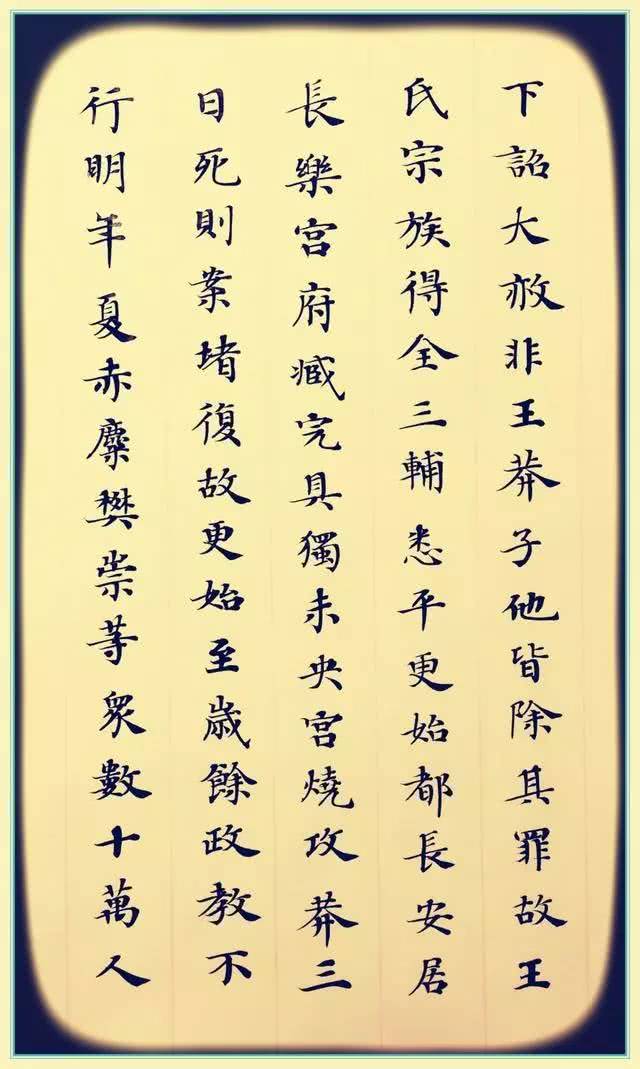 下詔大赦非王莽子他皆除其罪故王
氏宗族得全三輔悉平更始都長安居
長樂宮府臧完具獨未央宮燒攻莽三
日死則案堵復故更始至歲餘政教不
行明年夏赤麋樊崇等衆數十萬人